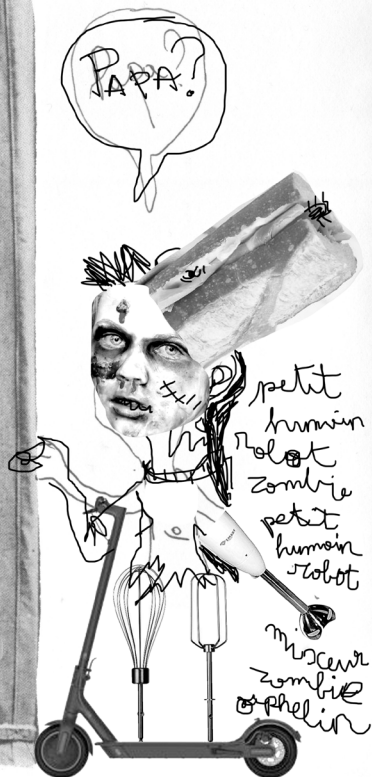 PAPA?
petit
humain
robot
zombie
petit
humain
robot
mixeur
zombie
orphelin